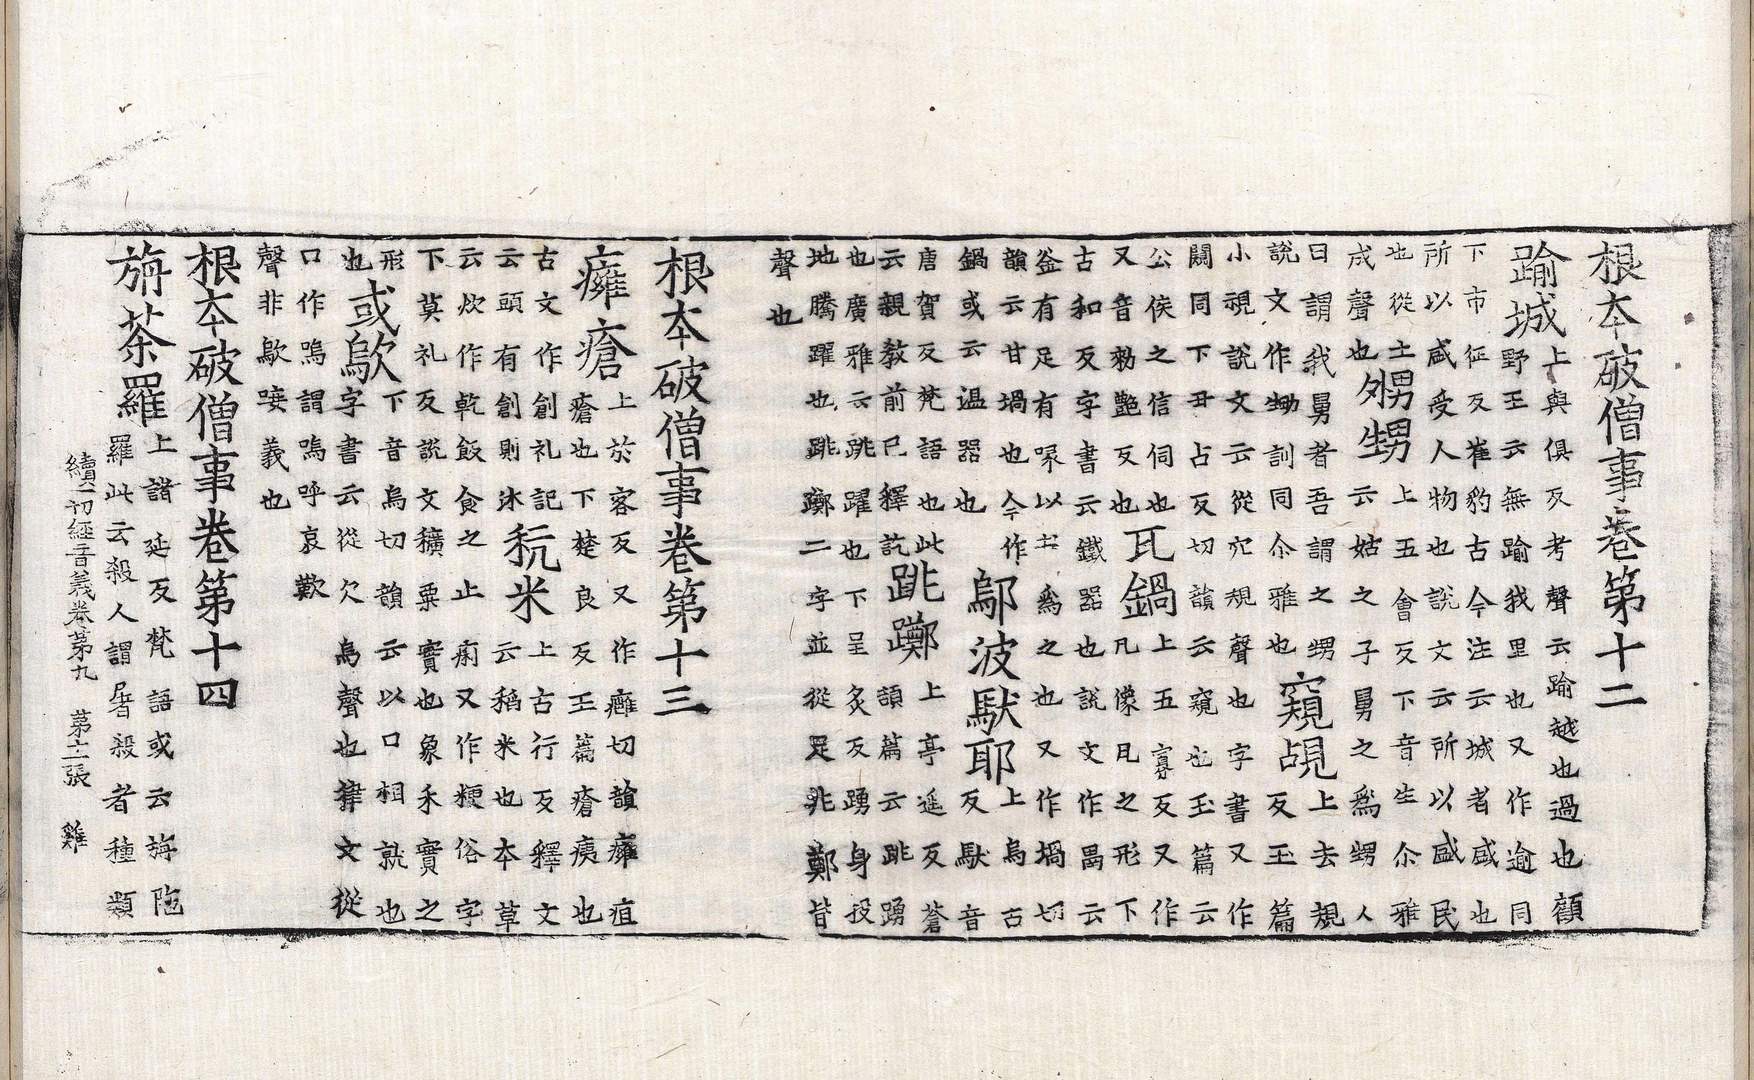 根本破僧事卷第十二
踰城
上與俱反考聲云踰越也過也顧
野王云無踰我里也又作逾同
下市征反崔豹古今注云城者盛也
所以盛受人物也說文云所以盛民
也從土
成聲也
甥
上五會反下音生尒雅
云姑之子舅之為甥人
曰謂我舅者吾謂之甥
說文作甥訓同尒雅也
窺覘
上去規
反玉篇
小視說文云從穴規聲也字書又作
闚同下丑占反切韻云窺也玉篇云
公侯之信伺也
又音勑艷反也
瓦鍋
上五寡反又作
凡像凡之形下
古和反字書云鐵器也說文作云
釜有足有喙以土為之也又作堝切
韻云甘堝也今作
鍋或云温器也
鄔波馱耶
上烏古
反馱音
唐賀反梵語也此
云親教前已釋訖
跳躑
上亭遥反蒼
頡篇云跳踊
也廣雅云跳躍也下呈炙反踊身投
地騰躍也跳躑二字並從足兆鄭皆
聲也
根本破僧事卷第十三
癰瘡
上於容反又作癰切韻癰疽
瘡也下楚良反玉篇瘡痍也
古文作創礼記
云頭有創則沐
秔米
上古行反釋文
云稻米也本草
云炊作乾飯食之止痢又作粳俗字
下莫礼反說文穬粟實也象禾實之
形
也
或歍
下音烏切韻云以口相就也
字書云從欠烏聲也律文從
口作嗚謂嗚呼哀歎
聲非歍唼義也
根本破僧事卷第十四
旃茶羅
上諸延反梵語或云旃陁
羅此云殺人謂屠殺者種類
續一切經音義卷第九 第十二張 雞